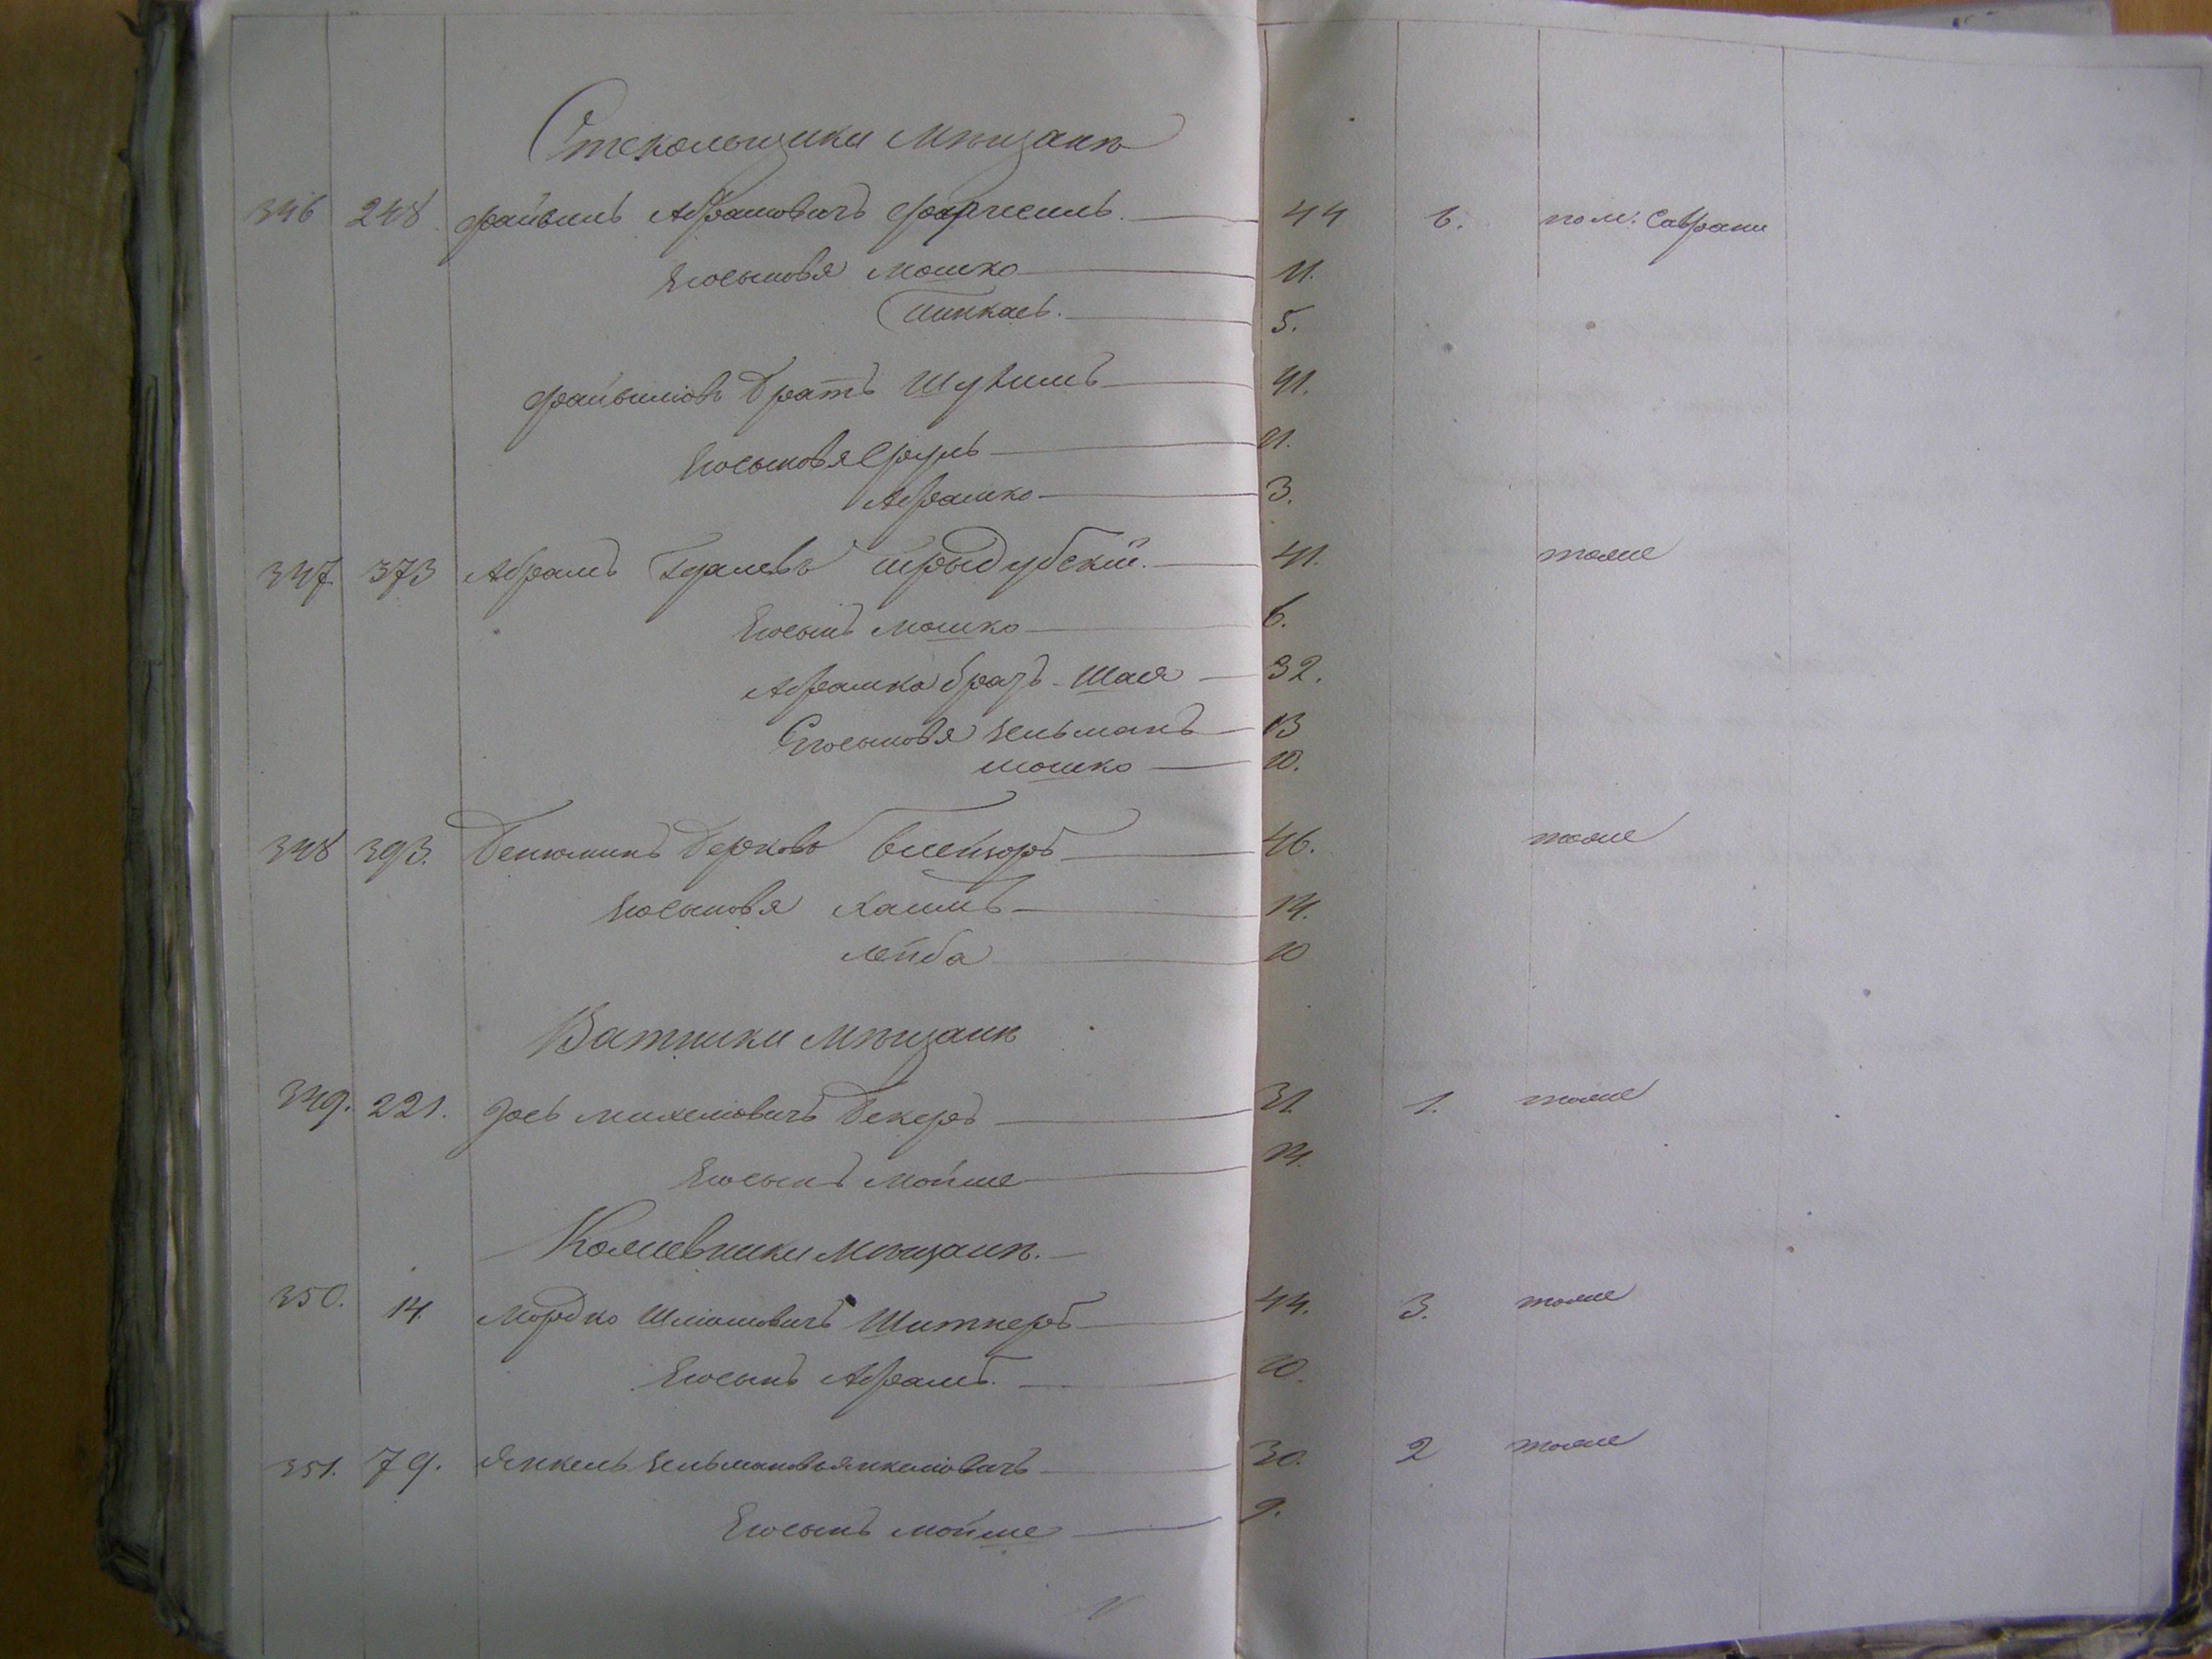 Стекольщики мѣщане
346 248 Файвель Абрамовичъ 44 6. по м. Саврани
Его сыновья Мошко 11.
Пинкасъ. 5.
Файвелевъ братъ 41.
Его сыновья Сруль 11.
Абрамко 3.
347. 373 Абрамъ Трыдубскій. 41. тоже
Его сынъ Мошко 6.
Абрамка братъ Шая 32.
Его сыновья Зельманъ 13
Мошко 10.
348 393. Бенюминъ Берковъ 46. тоже
Его сыновья Хаимъ 14.
Лейба 10
Ватники мѣщане
349. 221. Іосъ Михелевичъ Бекеръ 31. 1. тоже
Его сынъ Мойше 14.
мѣщане.
350. 14. Мордко Шлiомовичъ Шитнеръ 44. 3. тоже
Его сынъ Абрамъ. 10.
351. 79. Янкель 30. 2 тоже
Его сынъ Мойше 9.